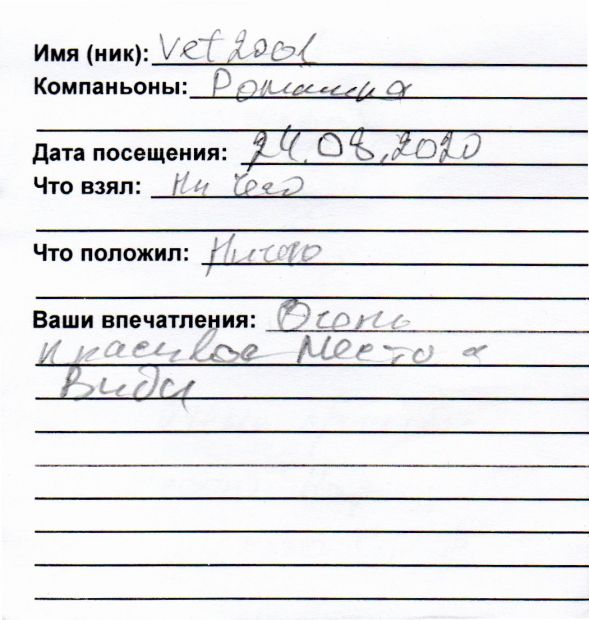 Имя (ник): Vet2001
Компаньоны: Ромашка
Дата посещения: 24.08.2020
Что взял: Ни чего
Что положил: Ничего
Ваши впечатления: Очень
красивое место и
Виды